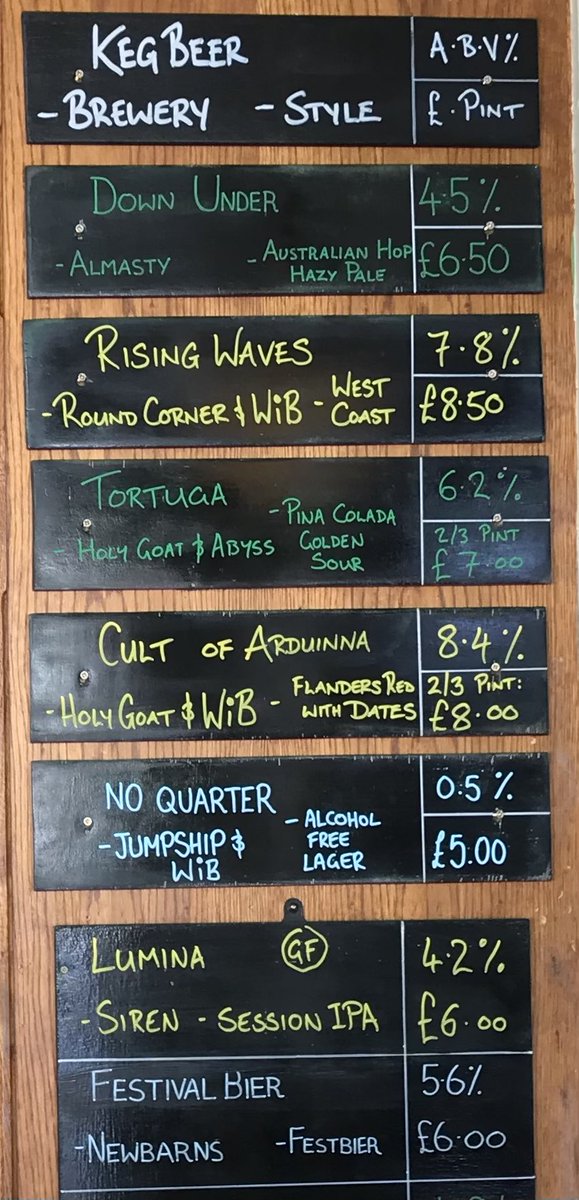 KEG BEER A.B.V%
- BREWERY - STYLE £. PINT
DOWN UNDER 4.5%
- ALMASTY - AUSTRALIAN HOP £6.50
HAZY PALE
RISING WAVES 7.8%
- ROUND CORNER & WiB - WEST £8.50
COAST
TORTUGA 6.2%
- PINA COLADA 2/3 PINT
- HOLY GOAT & ABYSS GOLDEN £7.00
SOUR
CULT OF ARDUINNA 8.4%
FLANDERS RED 2/3 PINT:
- HOLY GOAT & WiB - WITH DATES £8.00
NO QUARTER 0.5%
- ALCOHOL
- JUMPSHIP & FREE £5.00
WiB LAGER
LUMINA GF 4.2%
- SIREN - SESSION IPA £6.00
FESTIVAL BIER 5.6%
- NEWBARNS - FESTBIER £6.00